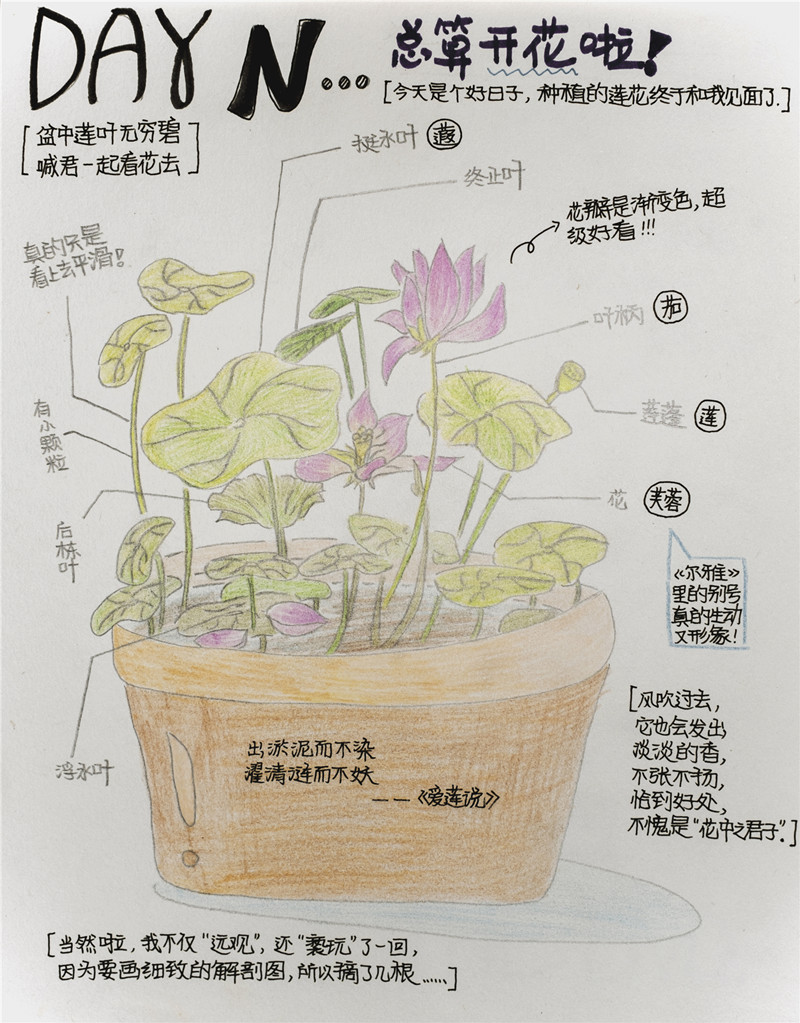 DAY N...
总算开花啦!
[今天是个好日子,种植的莲花终于和我见面了.]
[盆中莲叶无穷碧
喊君一起看花去]
挺水叶 蕸
终止叶
花瓣是渐变色,超
级好看!!!
真的只是
看上去平滑!
叶柄 茄
有小颗粒
莲蓬 莲
花 芙蓉
后栋叶
《尔雅》
里的别号
真的生动
又形象!
[风吹过去,
它也会发出
淡淡的香,
不张不扬,
恰到好处,
不愧是“花中之君子”.]
浮水叶
出淤泥而不染
濯清涟而不妖
——《爱莲说》
[当然啦,我不仅“远观”,还“亵玩”了一回,
因为要画细致的解剖图,所以摘了几根......]